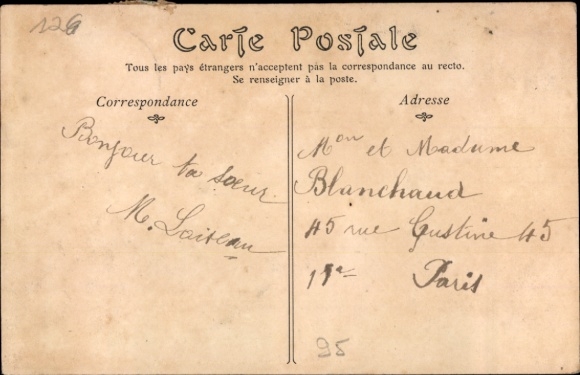 126
Carte Postale
Tous les pays étrangers n'acceptent pas la correspondance au recto.
Se renseigner à la poste.
Correspondance
Bonjour ta soeur
M. Loiseau
Adresse
Mon et Madame
Blanchaud
45 rue Gustine 45
Paris
95